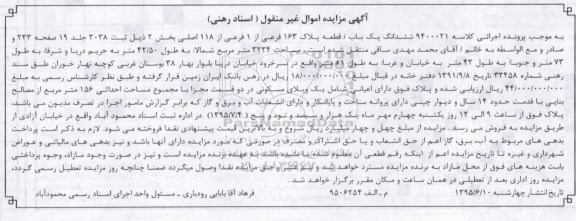 آگهی مزایده اموال غیر منقول ( اسناد رهنی )
به موجب پرونده اجرائی کلاسه 9400021 ششدانگ یک باب / قطعه پلاک 163 فرعی از 1 فرعی از 118 اصلی بخش 2 ذیل ثبت 3038 جلد 19 صفحه 233
و صادر و مع الواسطه به خانم / آقای محمد مهدی ساقی منتقل شده است. مساحت 3234 متر مربع شمالا: به طول 42/50 متر به حریم دریا و شرقا: به طول
73 متر و جنوبا: به طول 42 متر به خیابان و غربا: به طول متر واقع در سرخرود خیابان دریا بلوار بهار 38 بوستان غربی کوچه بهار خوران طبق سند
رهنی شماره 33458 تاریخ 1391/9/8 دفتر خانه در قبال مبلغ 18/000/000/000 ریال در رهن بانک ایران زمین قرار گرفته و طبق نظر کارشناس رسمی به مبلغ
44/000/000/000 ریال ارزیابی شده و پلاک فوق دارای اعیانی شامل یک ویلای مسکونی در دو قسمت مجزا با مجموع مساحت احداثی 156 متر مربع از مصالح
بنایی با قدمت حدود 14 سال و دیوار چینی دارای پروانه ساخت و پایانکار و دارای انشعابات آب و برق و گاز که برابر گزارش مامور اجرا در تصرف مدیون می باشد،
پلاک فوق از ساعت 9 الی 12 روز یکشنبه چهارم مهر ماه یک هزار و سیصد و نود و پنج (1395/7/4) در اداره ثبت اسناد محمود آباد واقع در خیابان آزادی از
طریق مزایده به فروش می رسد. مزایده از مبلغ چهل و چهار میلیارد ریال شروع و به بالاترین قیمت پیشنهادی نقدا فروخته می شود. لازم به ذکر است پرداخت
بدهی های مربوط به آب، برق، گاز اعم از حق انشعاب و یا حق اشتراک و مصرف در صورتی که مورد مزایده دارای آنها باشد و نیز بدهی های مالیاتی و عوارض
شهرداری و غیره تا تاریخ مزایده اعم از اینکه رقم قطعی آن معلوم شده یا نشده باشد به عهده برنده مزایده است و نیز در صورت وجود مازاد، وجوه پرداختی
بابت هزینه های فوق از محل مازاد به برنده مزایده مسترد خواهد شد و نیم عشر و حق مزایده نقدا وصول میگردد ضمنا چنانچه روز مزایده تعطیل رسمی گردد،
مزایده روز اداری بعد از تعطیلی در همان ساعت و مکان مقرر برگزار خواهد شد.
تاریخ انتشار چهارشنبه 1395/6/10 م-الف 9506254 فرهاد آقا بابایی رودباری - مسئول واحد اجرای اسناد رسمی محمودآباد